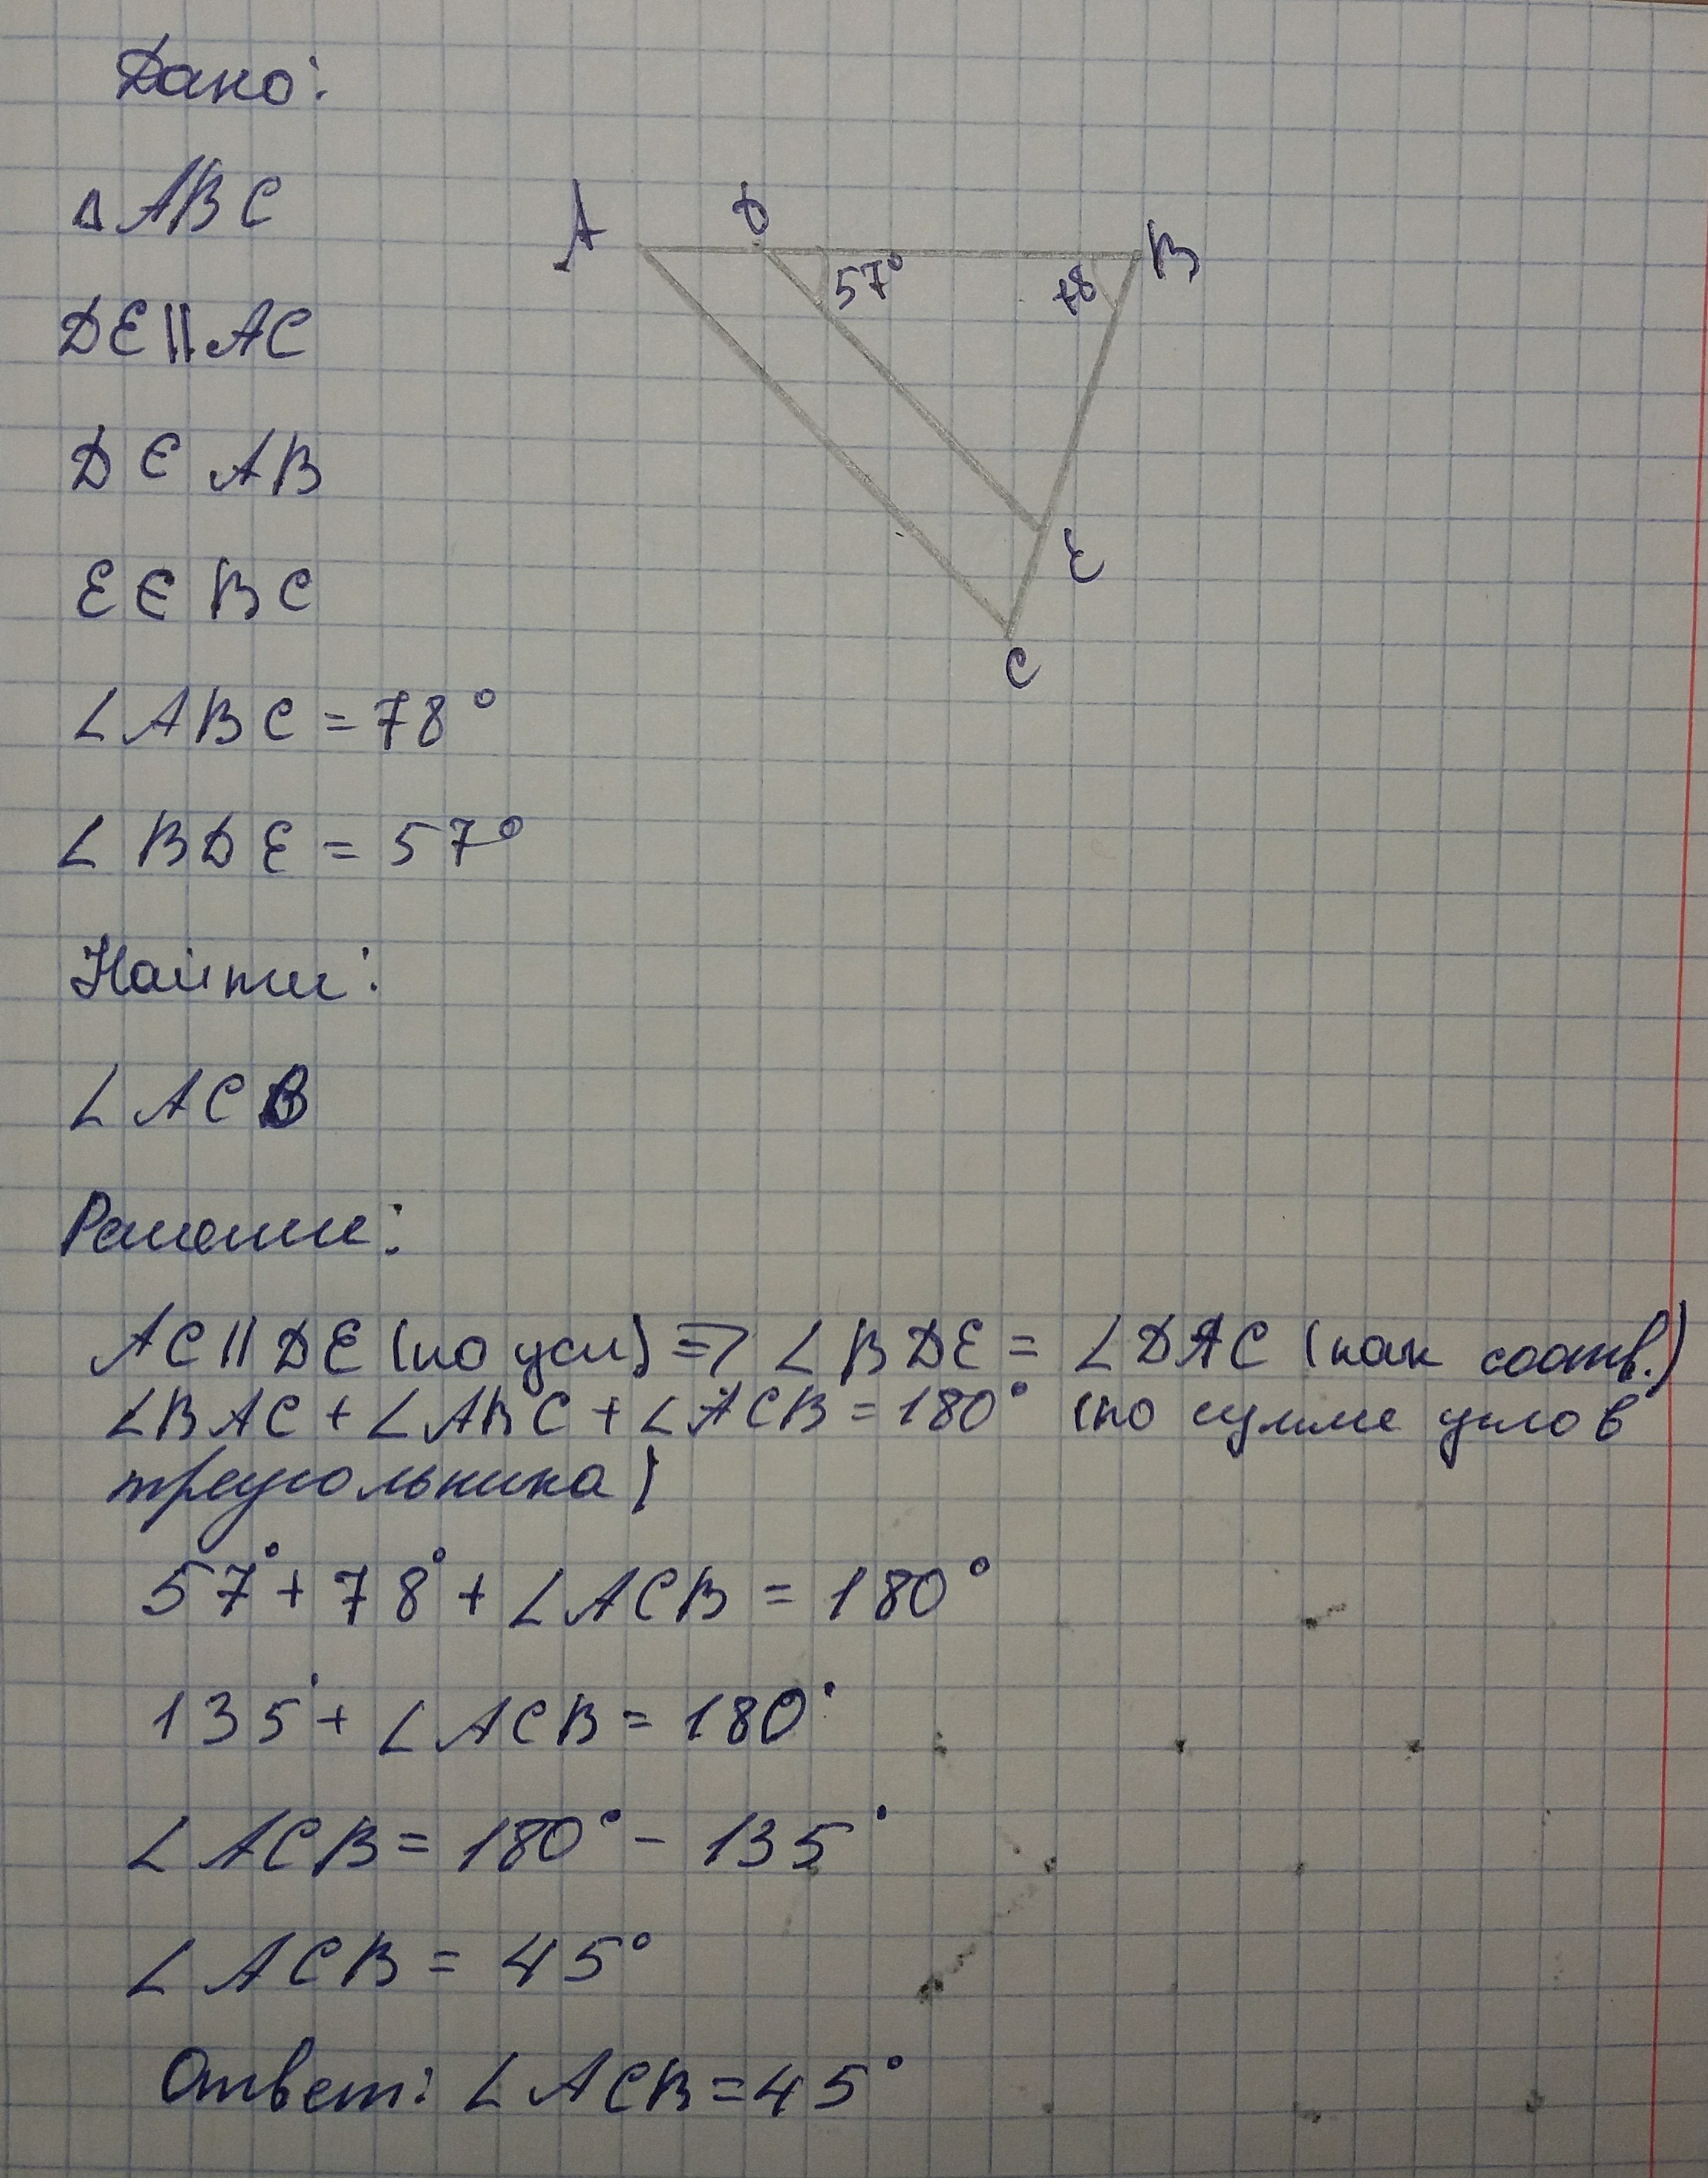 Дано:
△ABC
A D B
57° 78
DE || AC
D ∈ AB
E
E ∈ BC
C
∠ABC = 78°
∠BDE = 57°
Найти:
∠ACB
Решение:
AC || DE (по усл) ⇒ ∠BDE = ∠DAC (как соотв.)
∠BAC + ∠ABC + ∠ACB = 180° (по сумме углов
треугольника)
57° + 78° + ∠ACB = 180°
135° + ∠ACB = 180°
∠ACB = 180° - 135°
∠ACB = 45°
Ответ: ∠ACB = 45°